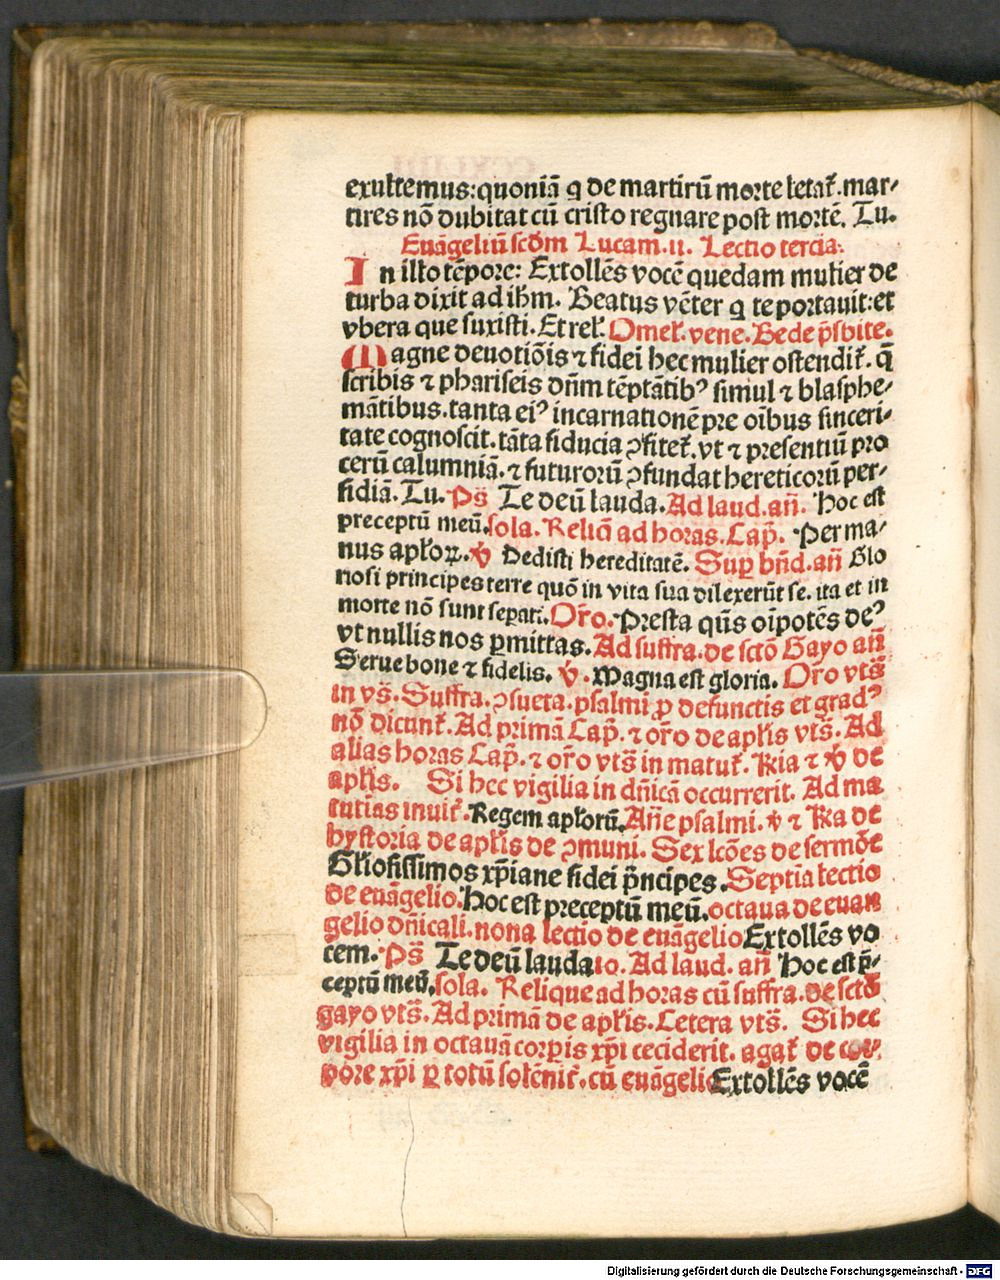 exultemus: quoniā q de martirū morte letat̄. mar⸗
tires nō dubitat cū cristo regnare post mortē. Tu.
Euāgeliū scdm Lucam. ii. Lectio tercia.
In illo tēpore: Extollēs vocē quedam mulier de
turba dixit ad ihm. Beatus vēter q te portauit: et
vbera que suxisti. Et rel̄. Omel̄. vene. Bede p̄sbite.
Magne deuotiōis ⁊ fidei hec mulier ostendit̄. q̄
scribis ⁊ phariseis dn̄m tēptātibꝰ simul ⁊ blasphe⸗
mātibus. tanta eiꝰ incarnationē pre oībus sinceri⸗
tate cognoscit. tāta fiducia ꝯfitet̄. vt ⁊ presentiū pro
cerū calumniā. ⁊ futurorū ꝯfundat hereticorū per⸗
fidiā. Tu. Ps̄ Te deū lauda. Ad laud. an̄. Hoc est
preceptū meū. sola. Reliq̄ ad horas. Cap̄. Per ma⸗
nus apl̄oꝝ. ℣ Dedisti hereditatē. Suꝑ bn̄d. an̄ Glo
riosi principes terre quō in vita sua dilexerūt se. ita et in
morte nō sunt seꝑati. Oŕo. Presta qūs oīpotēs deꝰ
vt nullis nos ꝑmittas. Ad suffra. de sctō Gayo an̄
Serue bone ⁊ fidelis. ℣. Magna est gloria. Oŕo vts̄
in vs̄. Suffra. ꝯsueta. psalmi ꝓ defunctis et gradꝰ
nō dicunt̄. Ad primā Cap̄. ⁊ oŕo de apl̄is vts̄. Ad
alias horas Cap̄. ⁊ oŕo vts̄ in matut̄. R̄ria ⁊ ℣ de
apl̄is. Si hec vigilia in dn̄icā occurrerit. Ad ma
tutīas inuit̄. Regem apl̄orū. An̄e psalmi. ℣ ⁊ R̄ia de
hystoria de apl̄is de ꝯmuni. Sex lcōes de sermōe
Gl̄iosissimos xp̄iane fidei p̄ncipes. Septīa lectio
de euāgelio. Hoc est preceptū meū. octaua de euan
gelio dn̄icali. nona lectio de euāgelio Extollēs vo
cem. Ps̄ Te deū laudam̄. Ad laud. an̄ Hoc est p̄⸗
ceptū meū. sola. Relique ad horas cū suffra. de sctō
gayo vts̄. Ad primā de apl̄is. Cetera vts̄. Si hec
vigilia in octauā corꝑis xp̄i ceciderit. agat̄ de cor⸗
pore xp̄i ꝑ totū solēnit̄. cū euāgelio Extollēs vocē
Digitalisierung gefördert durch die Deutsche Forschungsgemeinschaft - DFG